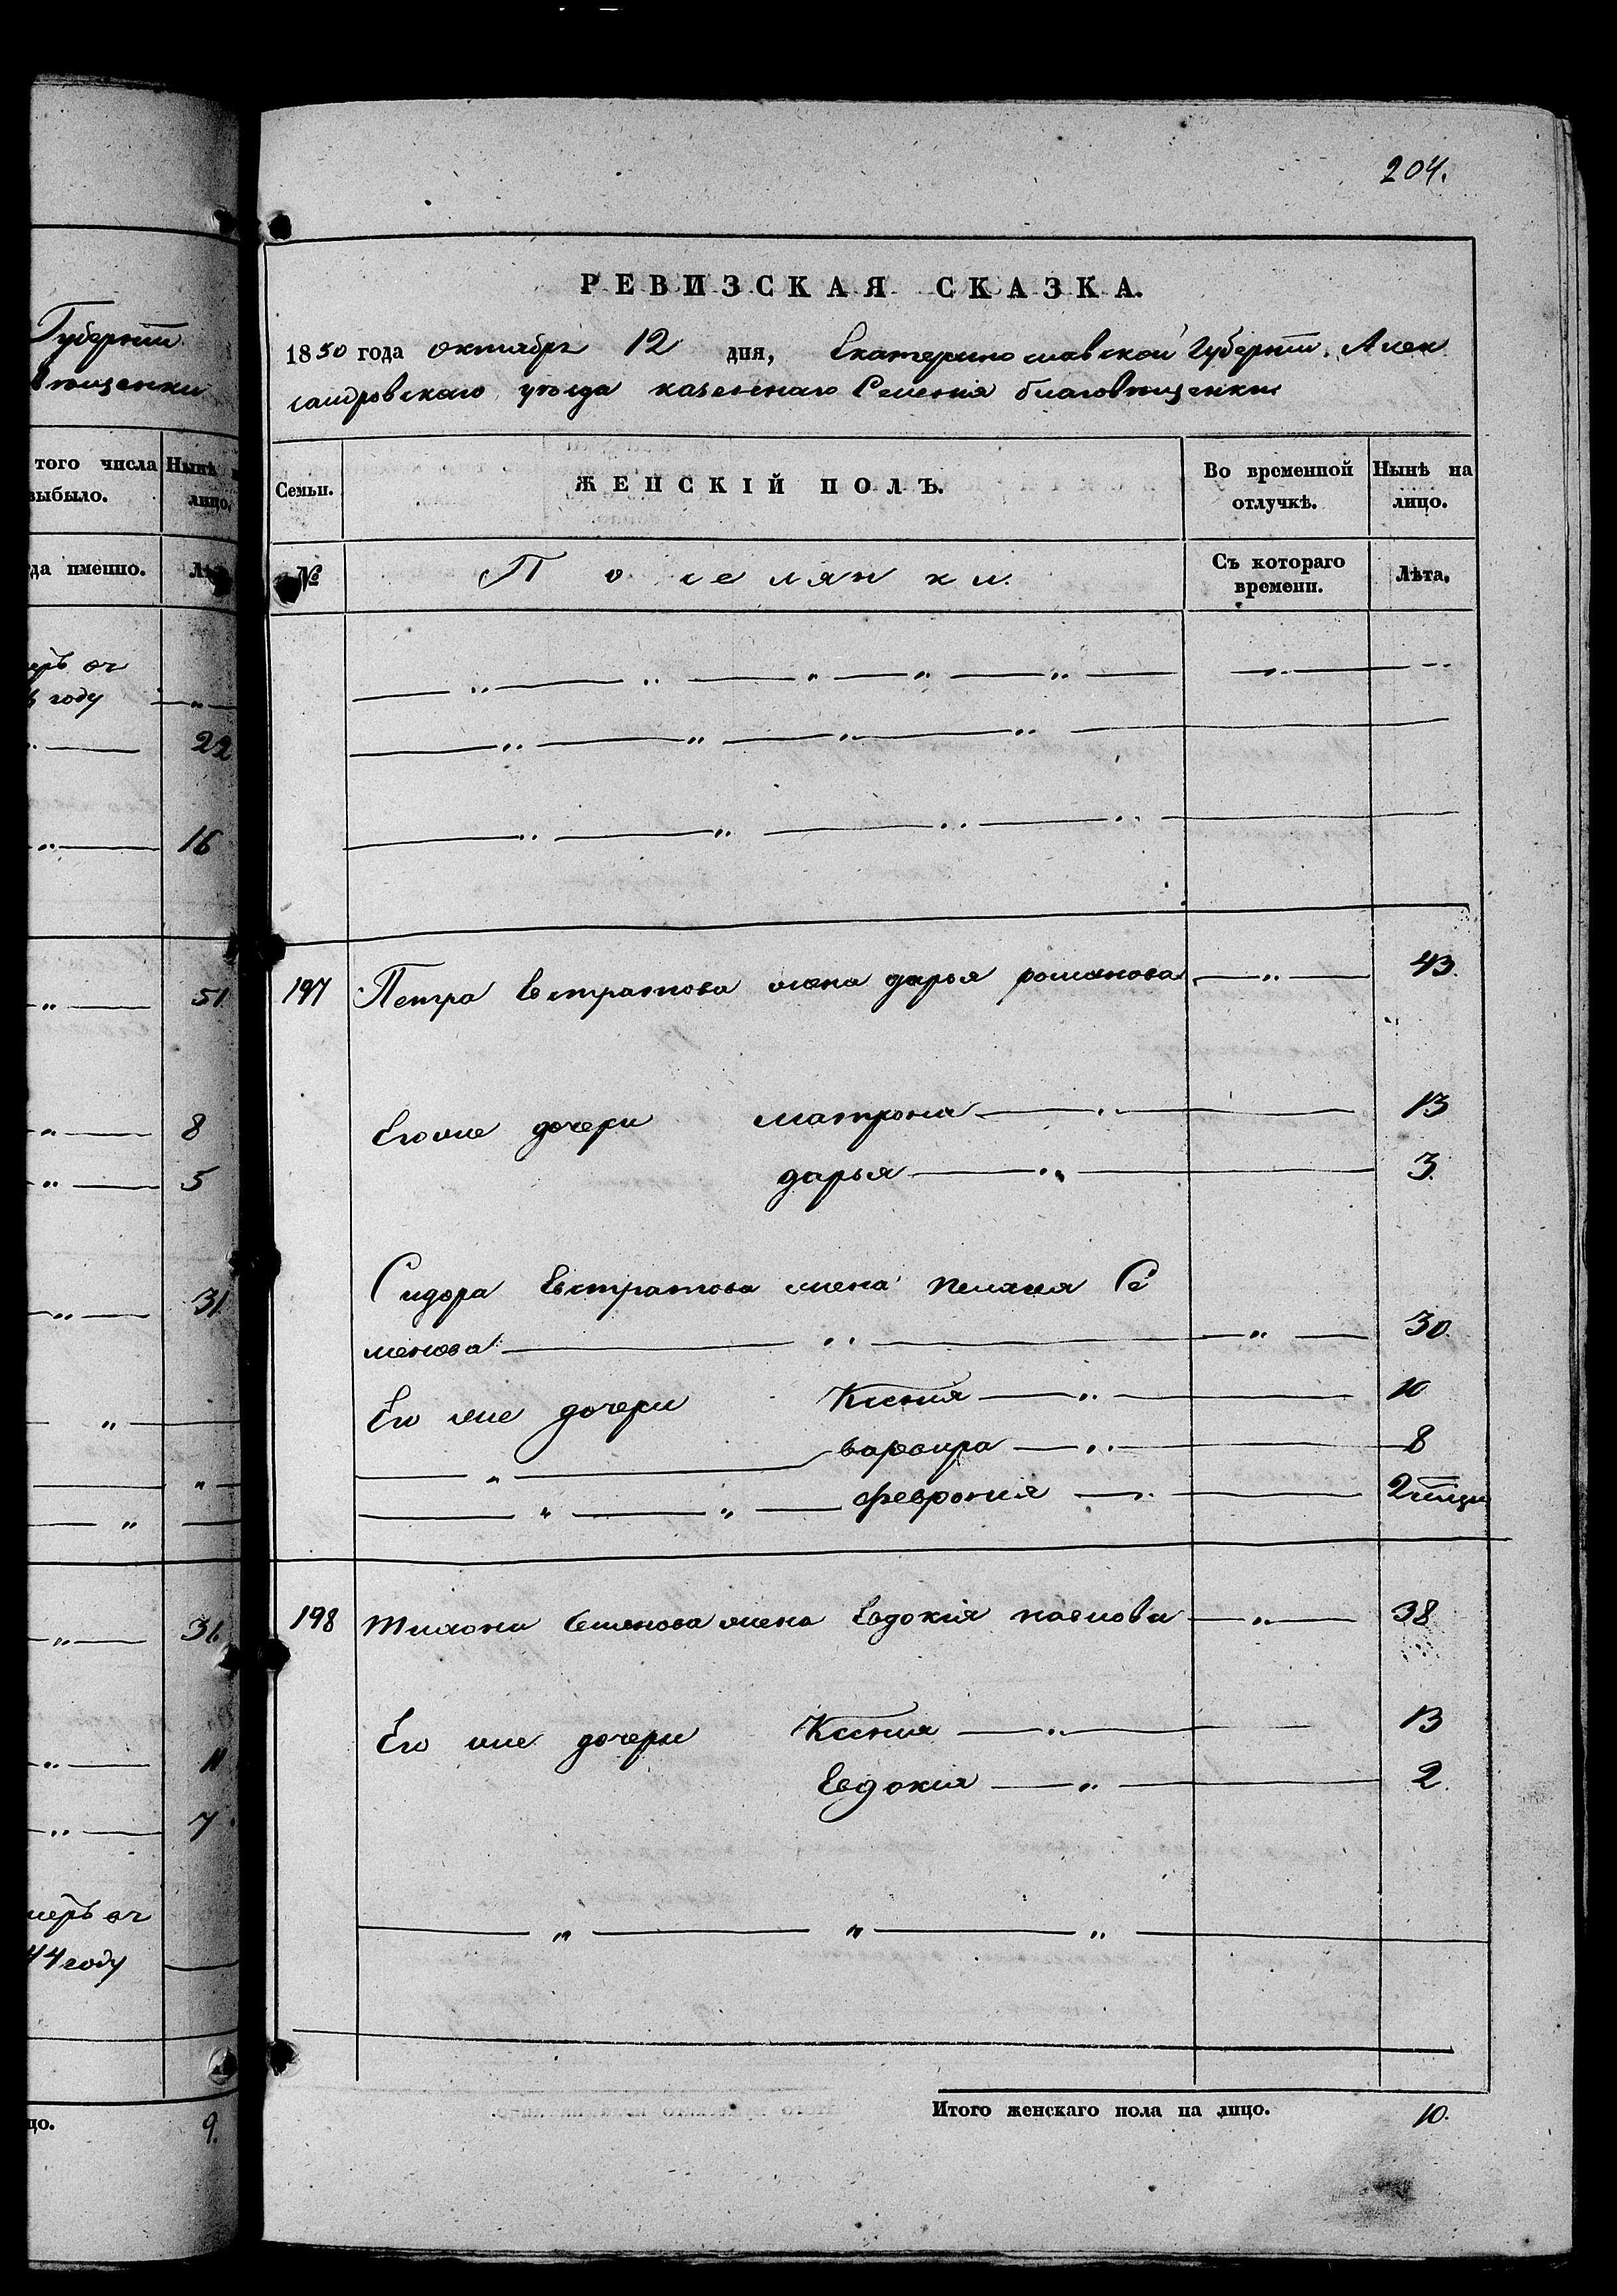 204.
Губерніи
того числа Нынѣ
выбыло. лицо.
да именно.
году
22
16
51
8
5
31
31
11
7
44 году
цо. 9.
РЕВИЗСКАЯ СКАЗКА.
1850 года октября 12 дня, Екатеринославской Губерніи, Алек
сандровскаго уѣзда казеннаго Селенія благовѣщенки
Семьи. ЖЕНСКІЙ ПОЛЪ. Во временной отлучкѣ. Нынѣ на лицо.
№ Поселянки. Съ котораго времени. Лѣта.
197 Петра Евстратова жена дарья романова — „ — 43.
Его же дочери матрона — „ — 13
дарья — „ — 3.
Сидора Евстратова жена пелагея Се
менова — „ — „ — 30.
Его же дочери Ксенія — „ — 10
варвара — „ — 8
— „ — „ — феврония — „ — 2 мца
198 Тихона Семенова жена Евдокія павлова — „ — 38
Его же дочери Ксенія — „ — 13
Евдокія — „ — 2.
— „ — „ — „ —
Итого женскаго пола на лицо. 10.